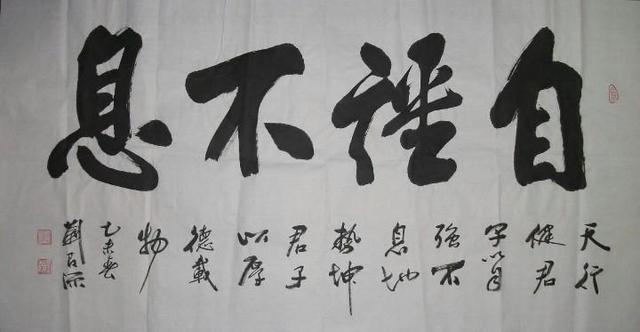 自强不息
天行
健君
子以自
強不
息地
勢坤
君子
以厚
德載
物
乙未春